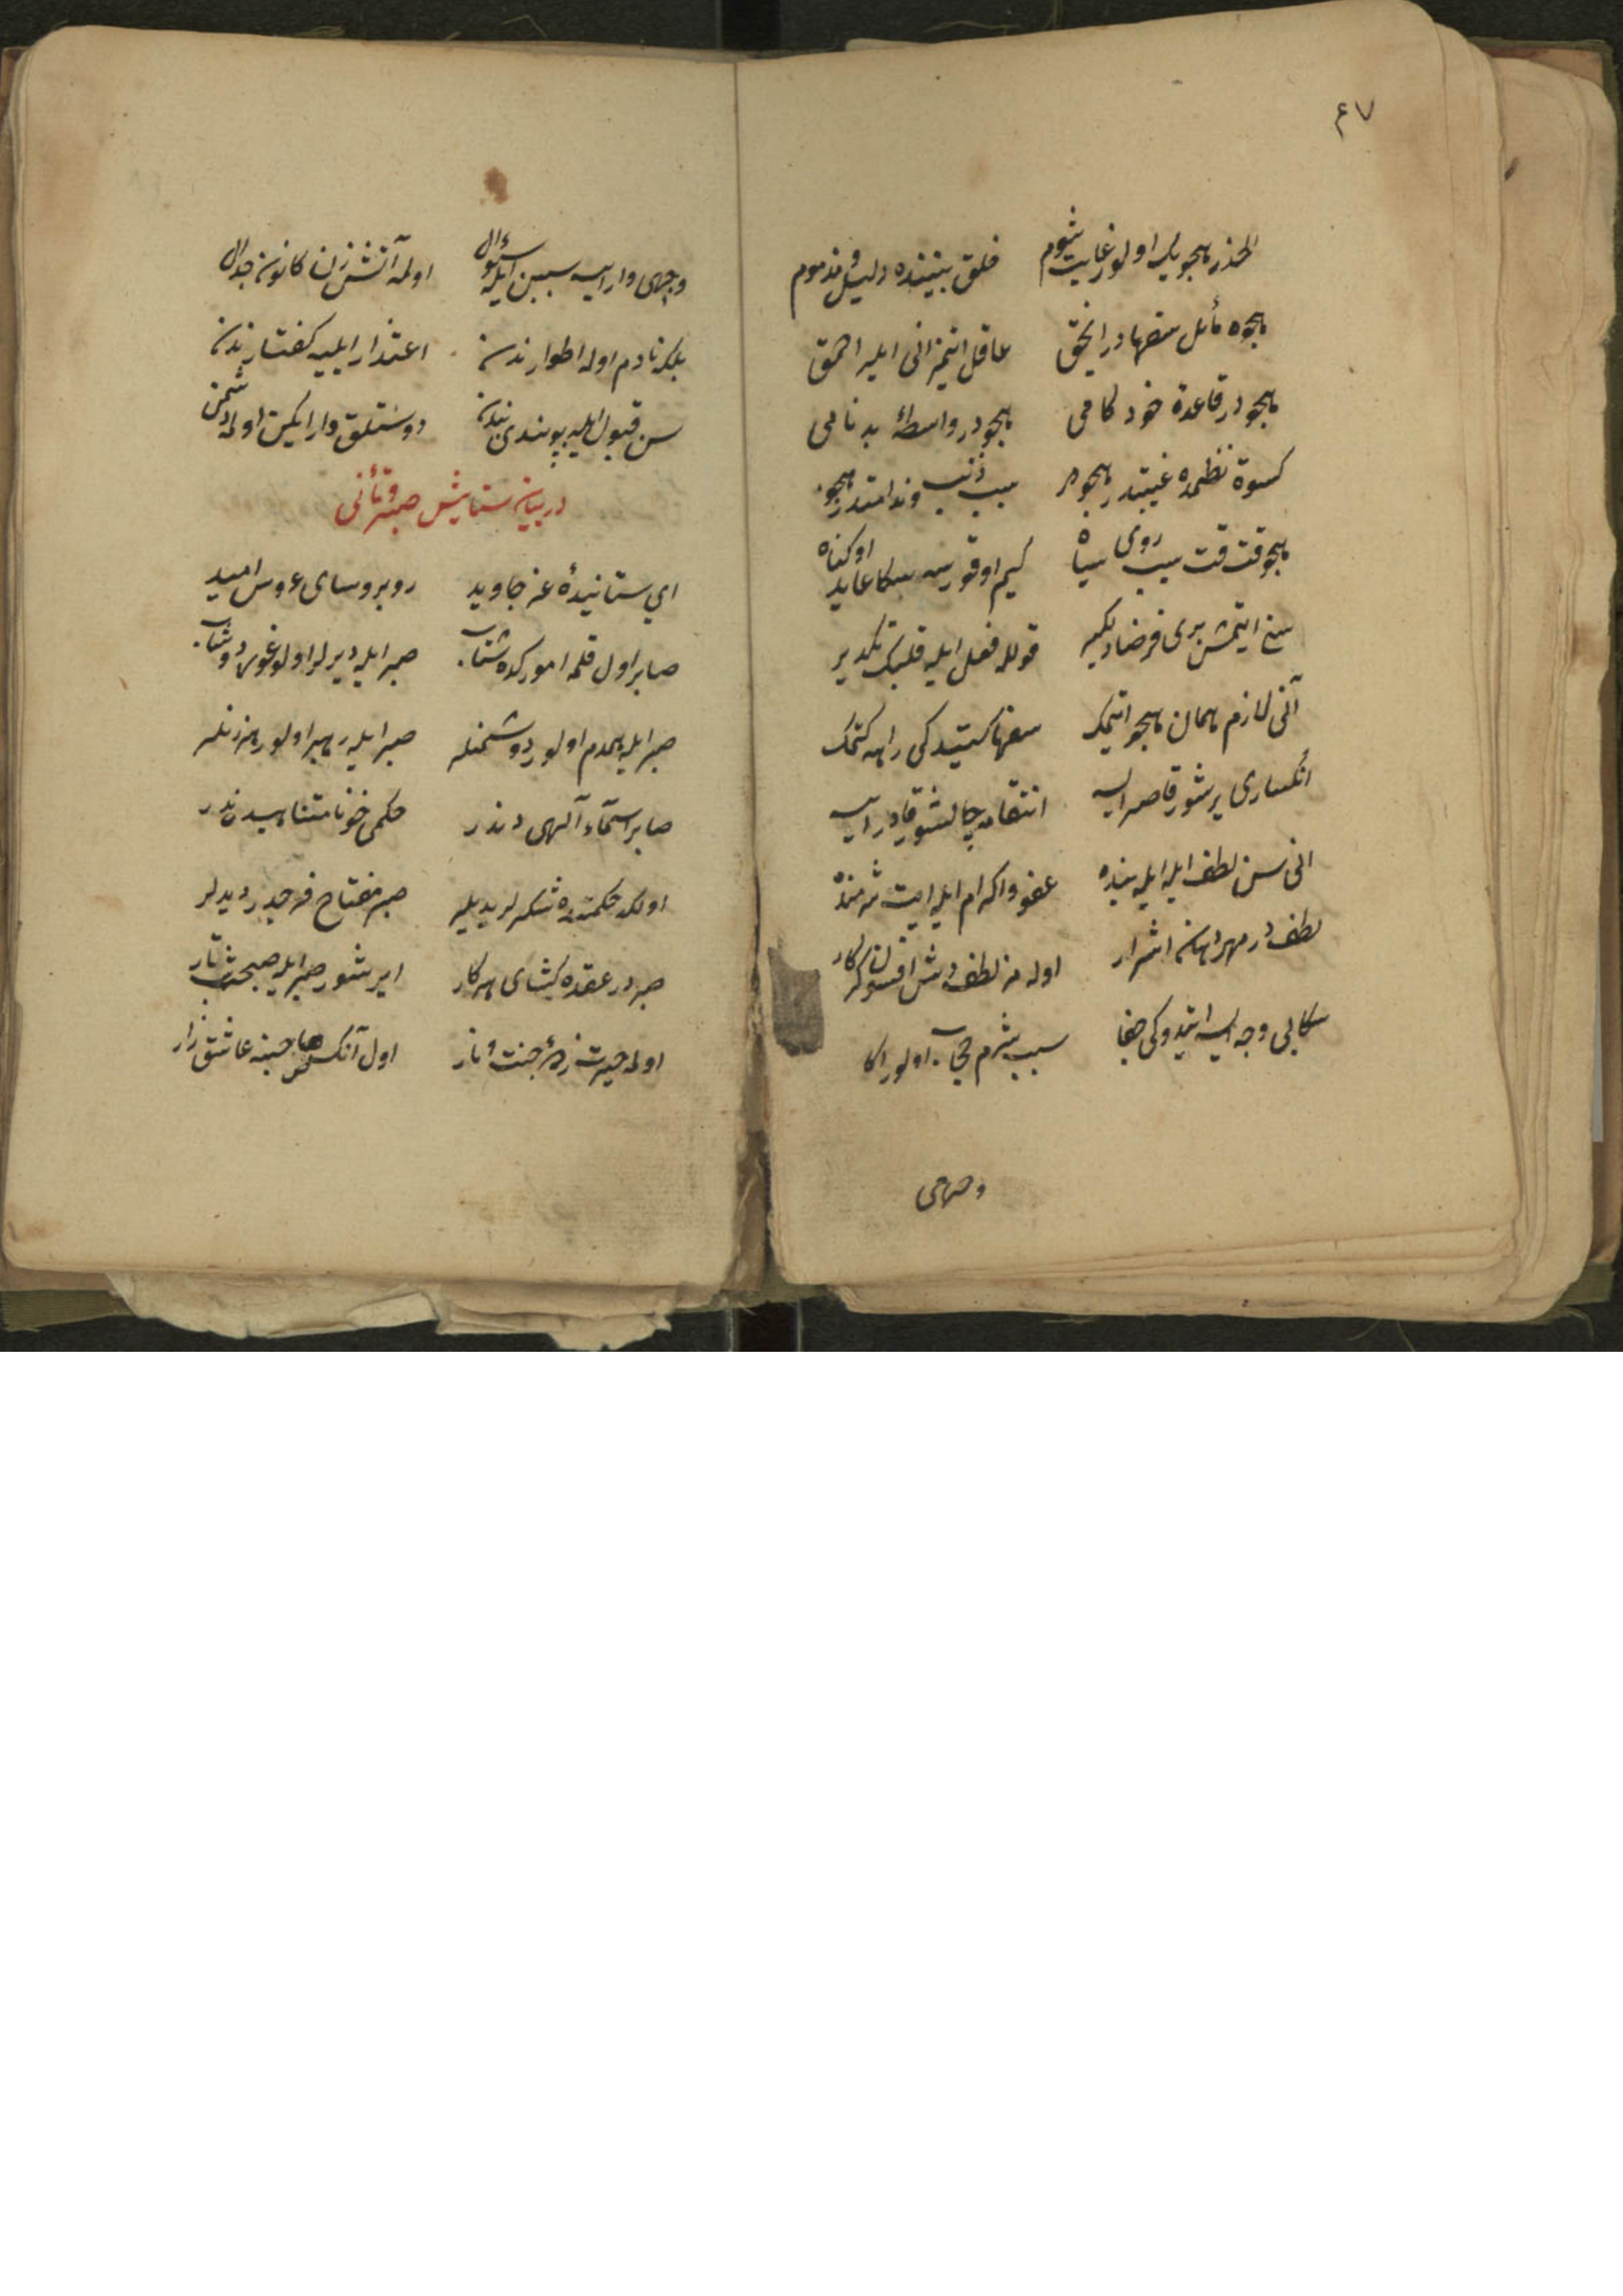 ٤٧
الحذر هجويله اولور غايت شوم خلق بيننده ذليل و مذموم
هجوه مائل سفهادر الحق عاقل ايتمز انى ايلر احمق
هجودر قاعدۀ خود كامى هجودر واسطۀ بدنامى
كسوۀ نظمده غيبتدر هجو سبب ذنب و ندامتدر هجو
هجو قت قت سبب روى سياه كيم اوقورسه سكا عايد او كناه
سنى ايتمش برى فرضا دلكير قولله فعل ايله قلبك تكدير
آنى لازم همان هجو ايتمك سفها كيتديكى راهه كتمك
انكسارى يرشور قاصر ايسه انتقامه چالشور قادر ايسه
انى سن لطف ايله ايله بنده عفو و اكرام ايله ايت شرمنده
لطفدر مهر دهان اشرار اوله مز لطف دش افسونكار
سكا بى وجه ايسه ايتدوكى جفا سبب شرم و حجاب اولور اكا
وجهى
وجهى وار ايسه سببن ايله سؤال اولمه آتش زن كانون جدال
بلكه نادم اوله اطوارندن اعتذار ايليه كفتارندن
سن قبول ايله بو پندى بندن دوستلق وار ايكن اولمه دشمن
در بيان ستايش صبر و تأنى
اي ستانيدۀ عز جاويد روبروساى عروس اميد
صابر اول قلمه اموركده شتاب صبر ايله ديرلر اولور غوره دوشاب
صبر ايله همدم اولور دوشمنلر صبر ايله رهبر اولور رهزنلر
صابر اسمآء آلهى دندر حكمى خود نامتناهيدندر
اولكه حكمتده شكرلر ييديلر صبر مفتاح فرجدر ديديلر
صبردر عقده كشاى هر كار ايريشور صبر ايله صبحه شب تار
اولمه حيرت زدۀ جنت و نار اول آنك حسنه عاشق زار